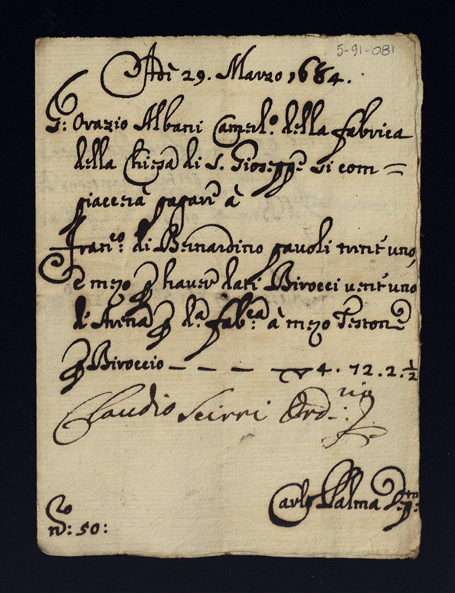 5-91-081
Adì 29. Marzo 1684.
S.r Orazio Albani Camerl.o della fabrica
della Chiesa di S. Gioseppe si com=
piacerà pagare à
Fran.co di Bernardino pavoli trent'uno,
e mezo p haver dati Birocci vent'uno
di Arena p d.a fab.ca à mezo Testone
p Biroccio — — — — 4. 72. 2. ½
Claudio Scirri Ord.rio
Carlo Palma
N.o: 50: